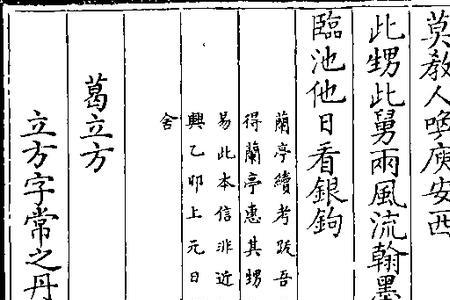 莫教人喚庾安西
此甥此舅兩風流翰墨
臨池他日看銀鉤
蘭亭續考跋吾
得蘭亭惠其甥
易此本信非近
興乙卯上元日
舍
葛立方
立方字常之丹